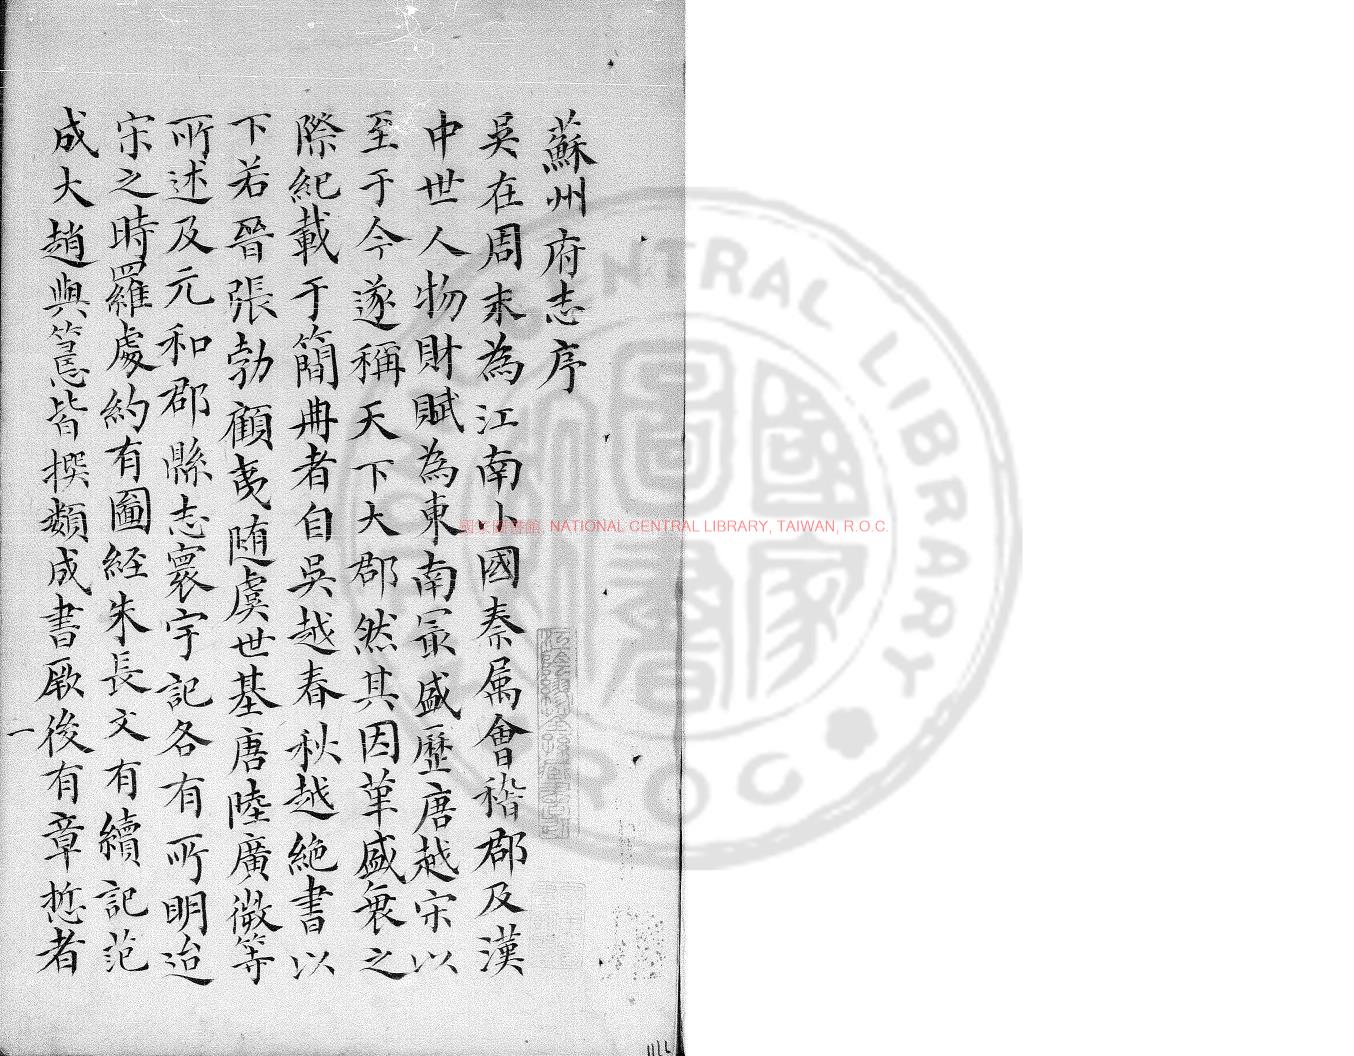 蘇州府志序
吳在周末為江南小國秦屬會稽郡及漢
中世人物財賦為東南冣盛歷唐越宋以
至于今遂稱天下大郡然其因革盛衰之
際紀載于簡冊者自吳越春秋越絶書以
下若晉張勃顧夷隨虞世基唐陸廣微等
所述及元和郡縣志寰宇記各有所明迨
宋之時羅處約有圖經朱長文有續記范
成大趙與𥲅皆撰類成書厥後有章悊者
一
國家圖書館, NATIONAL CENTRAL LIBRARY, TAIWAN, R.O.C.
CENTRAL LIBRARY
R O C
國家圖書